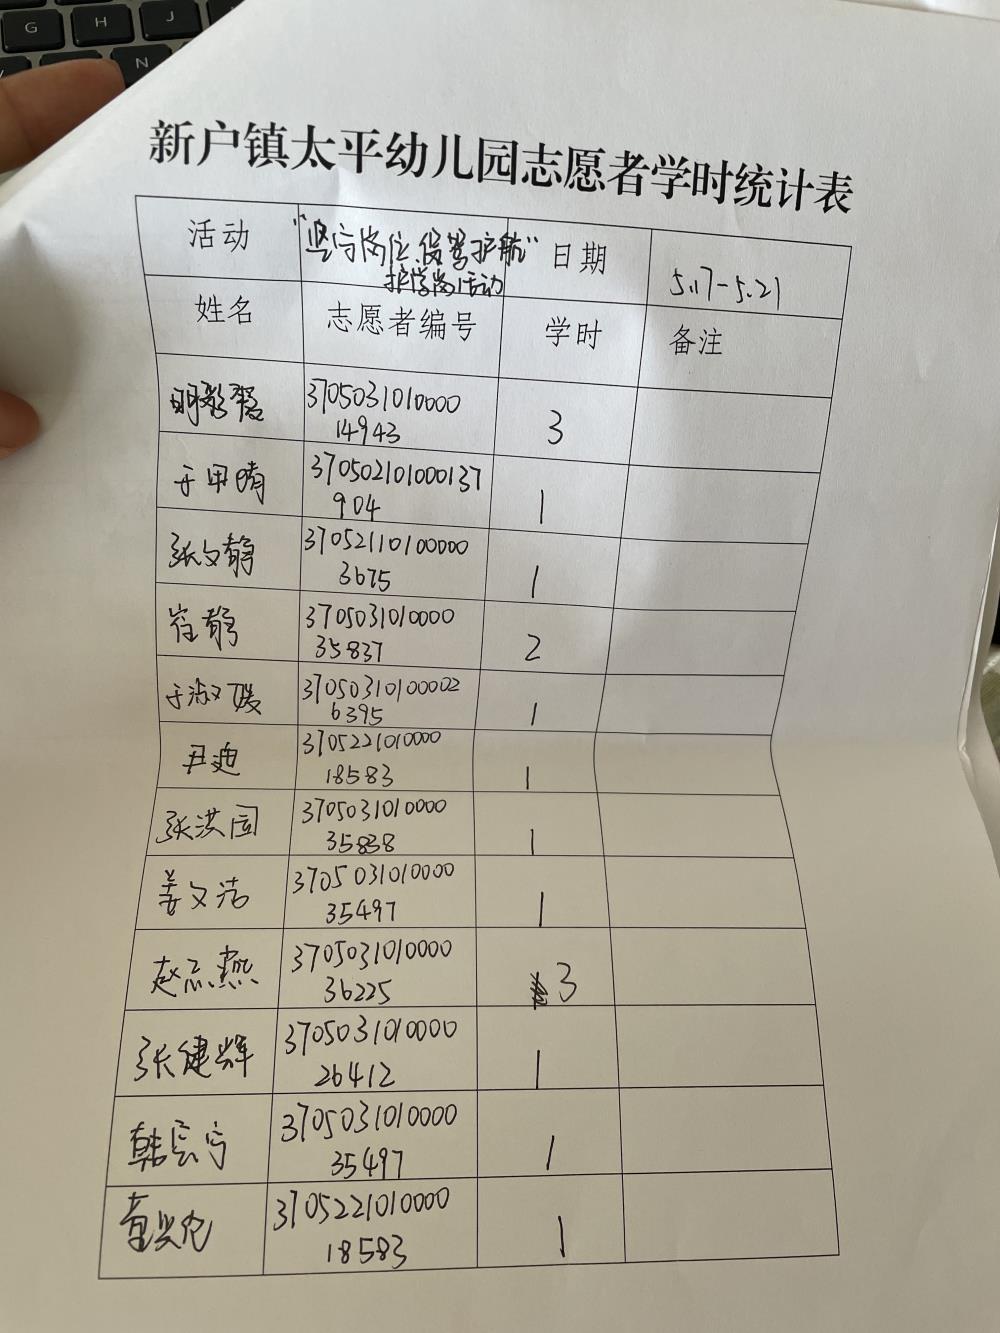 G H J
N
新户镇太平幼儿园志愿者学时统计表
活动 "坚守岗位、保驾护航" 日期 5.17-5.21
护学岗活动
姓名 志愿者编号 学时 备注
3705031010000 3
14943
于甲晴 370502101000137 1
904
张文静 3705211010000 1
3675
崔静 3705031010000 2
35837
于淑媛 37050310100002 1
6395
尹迪 3705221010000 1
18583
张洪国 3705031010000 1
35838
姜文洁 3705031010000 1
35497
赵燕 3705031010000 3
36225
张健辉 3705031010000 1
26412
韩 3705031010000 1
35497
董 3705221010000 1
18583